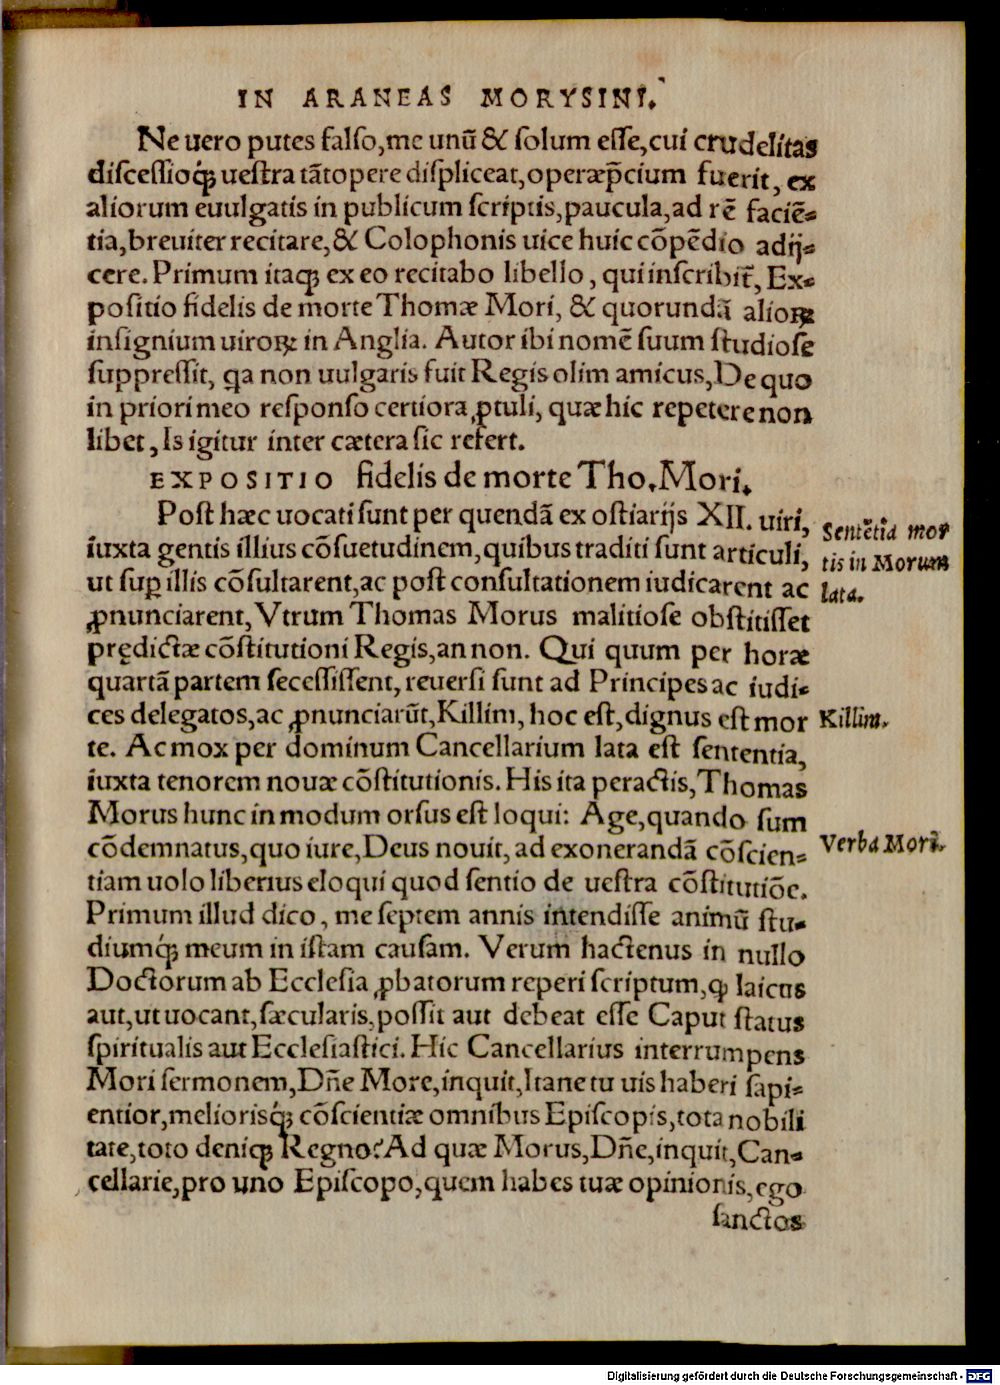 IN ARANEAS MORYSINI.
Ne uero putes falſo,me unũ & ſolum eſſe,cui crudelitas
diſceſſioq́ꝫ ueſtra tãtopere diſpliceat,operæp̃cium fuerit, ex
aliorum euulgatis in publicum ſcriptis,paucula,ad rẽ faciẽ-
tia,breuiter recitare,& Colophonis uice huic cõpẽdio adij-
cere. Primum itaqꝫ ex eo recitabo libello, qui inſcribit᷑, Ex-
poſitio fidelis de morte Thomæ Mori, & quorundã alioꝝ
inſignium uiroꝝ in Anglia. Autor ibi nomẽ ſuum ſtudioſe
ſuppreſſit, ꝗa non uulgaris fuit Regis olim amicus, De quo
in priori meo reſponſo certiora ꝓtuli, quæ hic repetere non
libet, Is igitur inter cætera ſic refert.
EXPOSITIO fidelis de morte Tho. Mori.
Poſt hæc uocati ſunt per quendã ex oſtiarijs XII. uiri,
iuxta gentis illius cõſuetudinem,quibus traditi ſunt articuli,
ut ſuꝑ illis cõſultarent,ac poſt conſultationem iudicarent ac
ꝓnunciarent, Vtrum Thomas Morus malitioſe obſtitiſſet
prędictæ cõſtitutioni Regis,an non. Qui quum per horæ
quartã partem ſeceſſiſſent, reuerſi ſunt ad Principes ac iudi-
ces delegatos,ac ꝓnunciarũt,Killim, hoc eſt, dignus eſt mor
te. Ac mox per dominum Cancellarium lata eſt ſententia,
iuxta tenorem nouæ cõſtitutionis. His ita peractis, Thomas
Morus hunc in modum orſus eſt loqui: Age,quando ſum
cõdemnatus,quo iure,Deus nouit, ad exonerandã cõſcien-
tiam uolo liberius eloqui quod ſentio de ueſtra cõſtitutiõe.
Primum illud dico, me ſeptem annis intendiſſe animũ ſtu-
diumq́ꝫ meum in iſtam cauſam. Verum hactenus in nullo
Doctorum ab Eccleſia ꝓbatorum reperi ſcriptum,ꝙ laicus
aut,ut uocant,ſæcularis,poſſit aut debeat eſſe Caput ſtatus
ſpiritualis aut Eccleſiaſtici. Hic Cancellarius interrumpens
Mori ſermonem,Dñe More,inquit,Itane tu uis haberi ſapi-
entior,meliorisq́ꝫ cõſcientiæ omnibus Epiſcopis,tota nobili
tate,toto deniqꝫ Regno? Ad quæ Morus,Dñe,inquit,Can-
cellarie,pro uno Epiſcopo,quem habes tuæ opinionis,ego
ſanctos
Sentẽtia mor
tis in Morum
lata.
Killim.
Verba Mori.
Digitalisierung gefördert durch die Deutsche Forschungsgemeinschaft - DFG